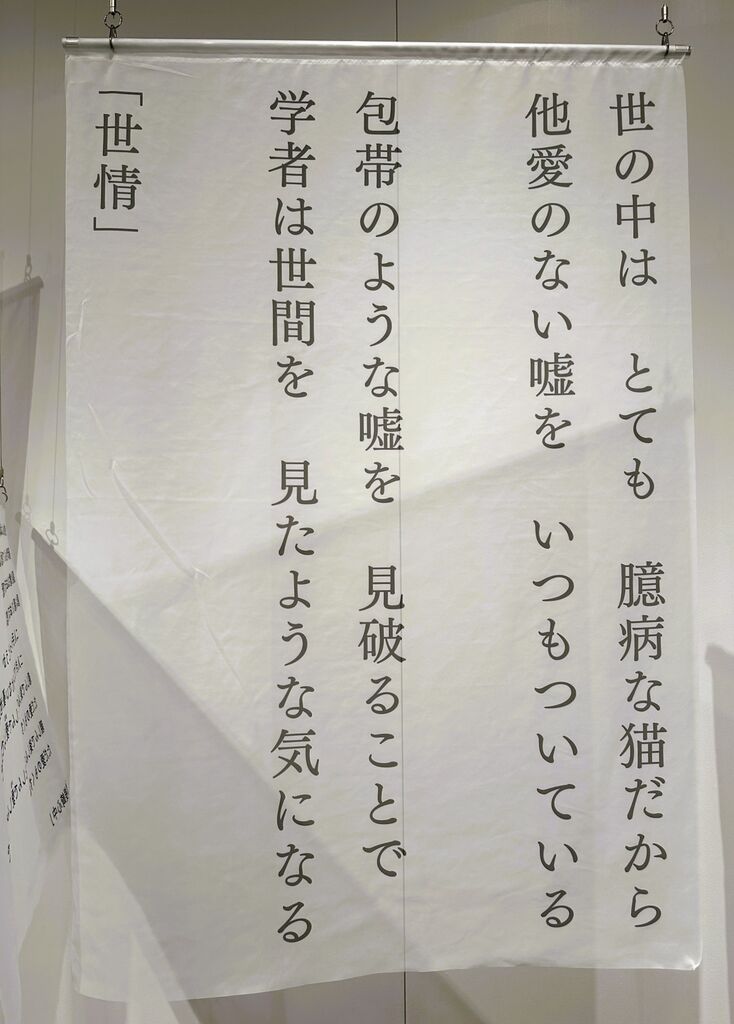 世の中は　とても　臆病な猫だから
他愛のない嘘を　いつもついている
包帯のような嘘を　見破ることで
学者は世間を　見たような気になる
「世情」